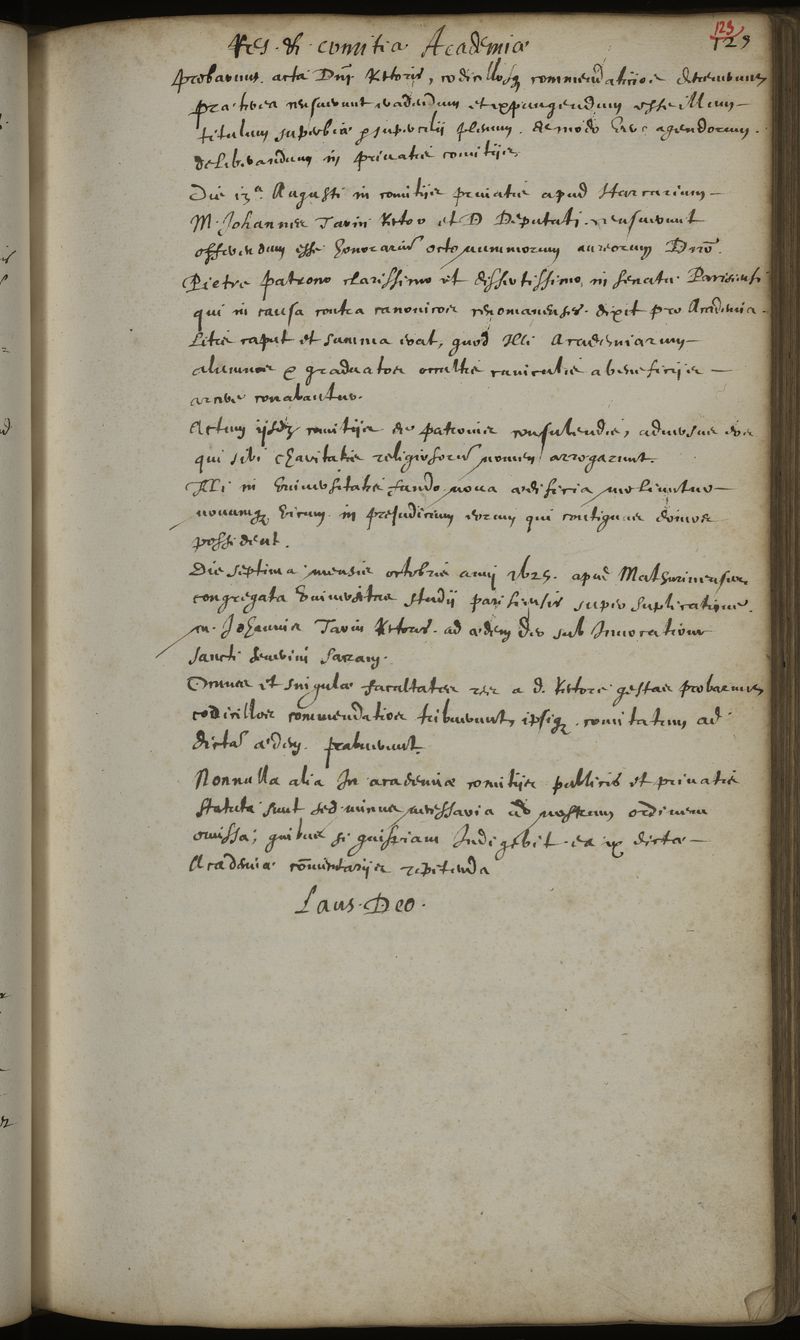 123
Res & comitia Academiæ 123
probarunt. acta Dni Rectoris, codicillosq commendatitios decreverunt
præterea censuerunt radendum et expungendum esse illum
titulum superbiæ & supercilij plenum. de modo agendorum.
deliberandum in privatis comitijs
Die 13ª Augusti in comitijs privatis apud Harcurium
M. Johannes Tarin Rector et D Deputati censuerunt
offerendum esse honorariũ octo nummorum aureorum Dnõ.
Pietre patrono clarissimo et disertissimo in senatu Parisiensi
qui in causa contra canonicos cenomanenses. dixit pro Academia.
Litis caput et summa erat, quod Illi Academiarum
alumnos & graduatos occultis cuniculis a beneficijs
arcere conabantur.
Actum ijsdẽ comitijs de patronis consulendis, adversus eos
qui sibi charitatis religiosorũ nomen arrogarunt.
Illi in universitatis fundo nova ædificia moliuntur
novumq vicum in prejudicium eorum qui contiguas domos
possident.
Die septima mensis octobris anni 1625. apud Mathurinenses
congregata universitas studij parisiensis super suplicatione.
m. Johannis Tarin Rectoris. ad ædem deo sub Invocatione
sancti severini sacram.
Omnes et singulæ facultates res a d. Rectore gestas probarunt
codicillos commendatios tribuerunt, ipsiq. comitatum ad
dictã ædem. prebuerunt.
Nonnulla alia In academiæ comitijs publicis et privatis
statuta sunt sed minus necessaria ad nostrum ordinem
omissa, quibus si quispiam Indigebit. ea ex dictæ
Academiæ cõmentarijs repetenda
Laus. Deo.